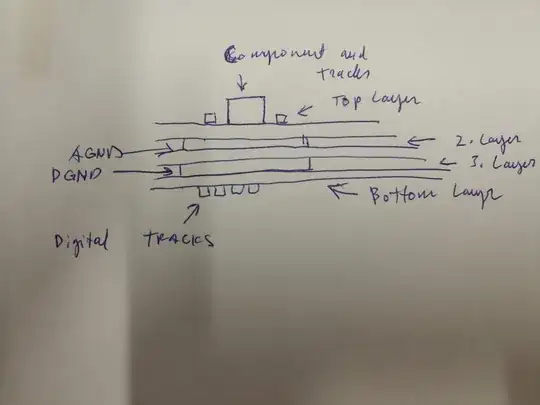 Component and
tracks
Top Layer
AGND
2. Layer
DGND
3. Layer
Bottom Layer
Digital TRACKS